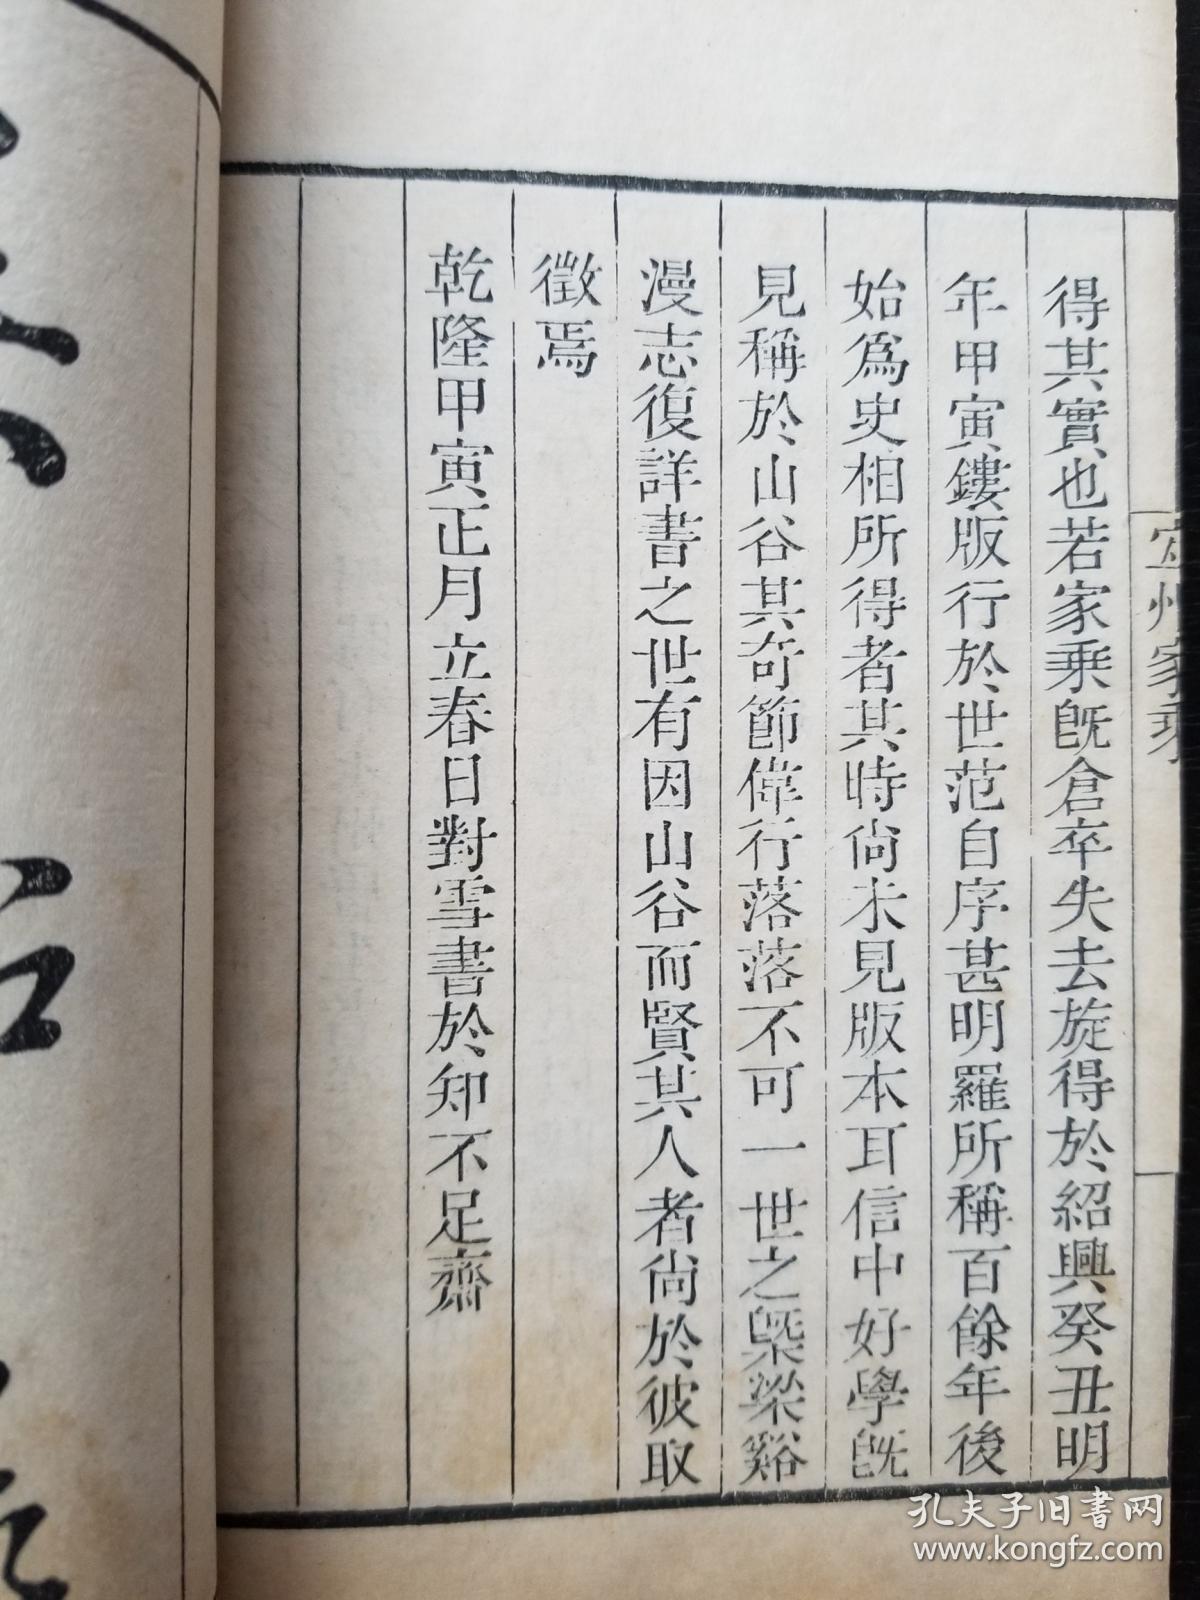 宜州家乘
得其實也若家乘旣倉卒失去旋得於紹興癸丑明
年甲寅鏤版行於世范自序甚明羅所稱百餘年後
始爲史相所得者其時尙未見版本耳信中好學旣
見稱於山谷其奇節偉行落落不可一世之槩梁谿
漫志復詳書之世有因山谷而賢其人者尙於彼取
徵焉
乾隆甲寅正月立春日對雪書於知不足齋
孔夫子旧书网
www.kongfz.com